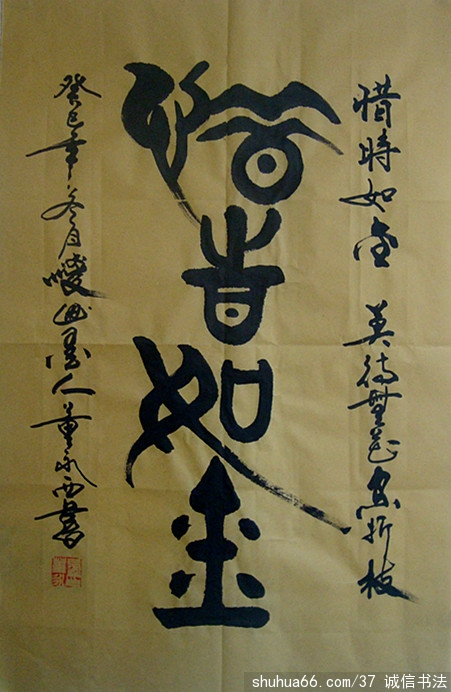 惜時如金 莫待無花空折枝
惜旹如金
癸巳年冬月山墨人董永西書
shuhua66.com/37 诚信书法